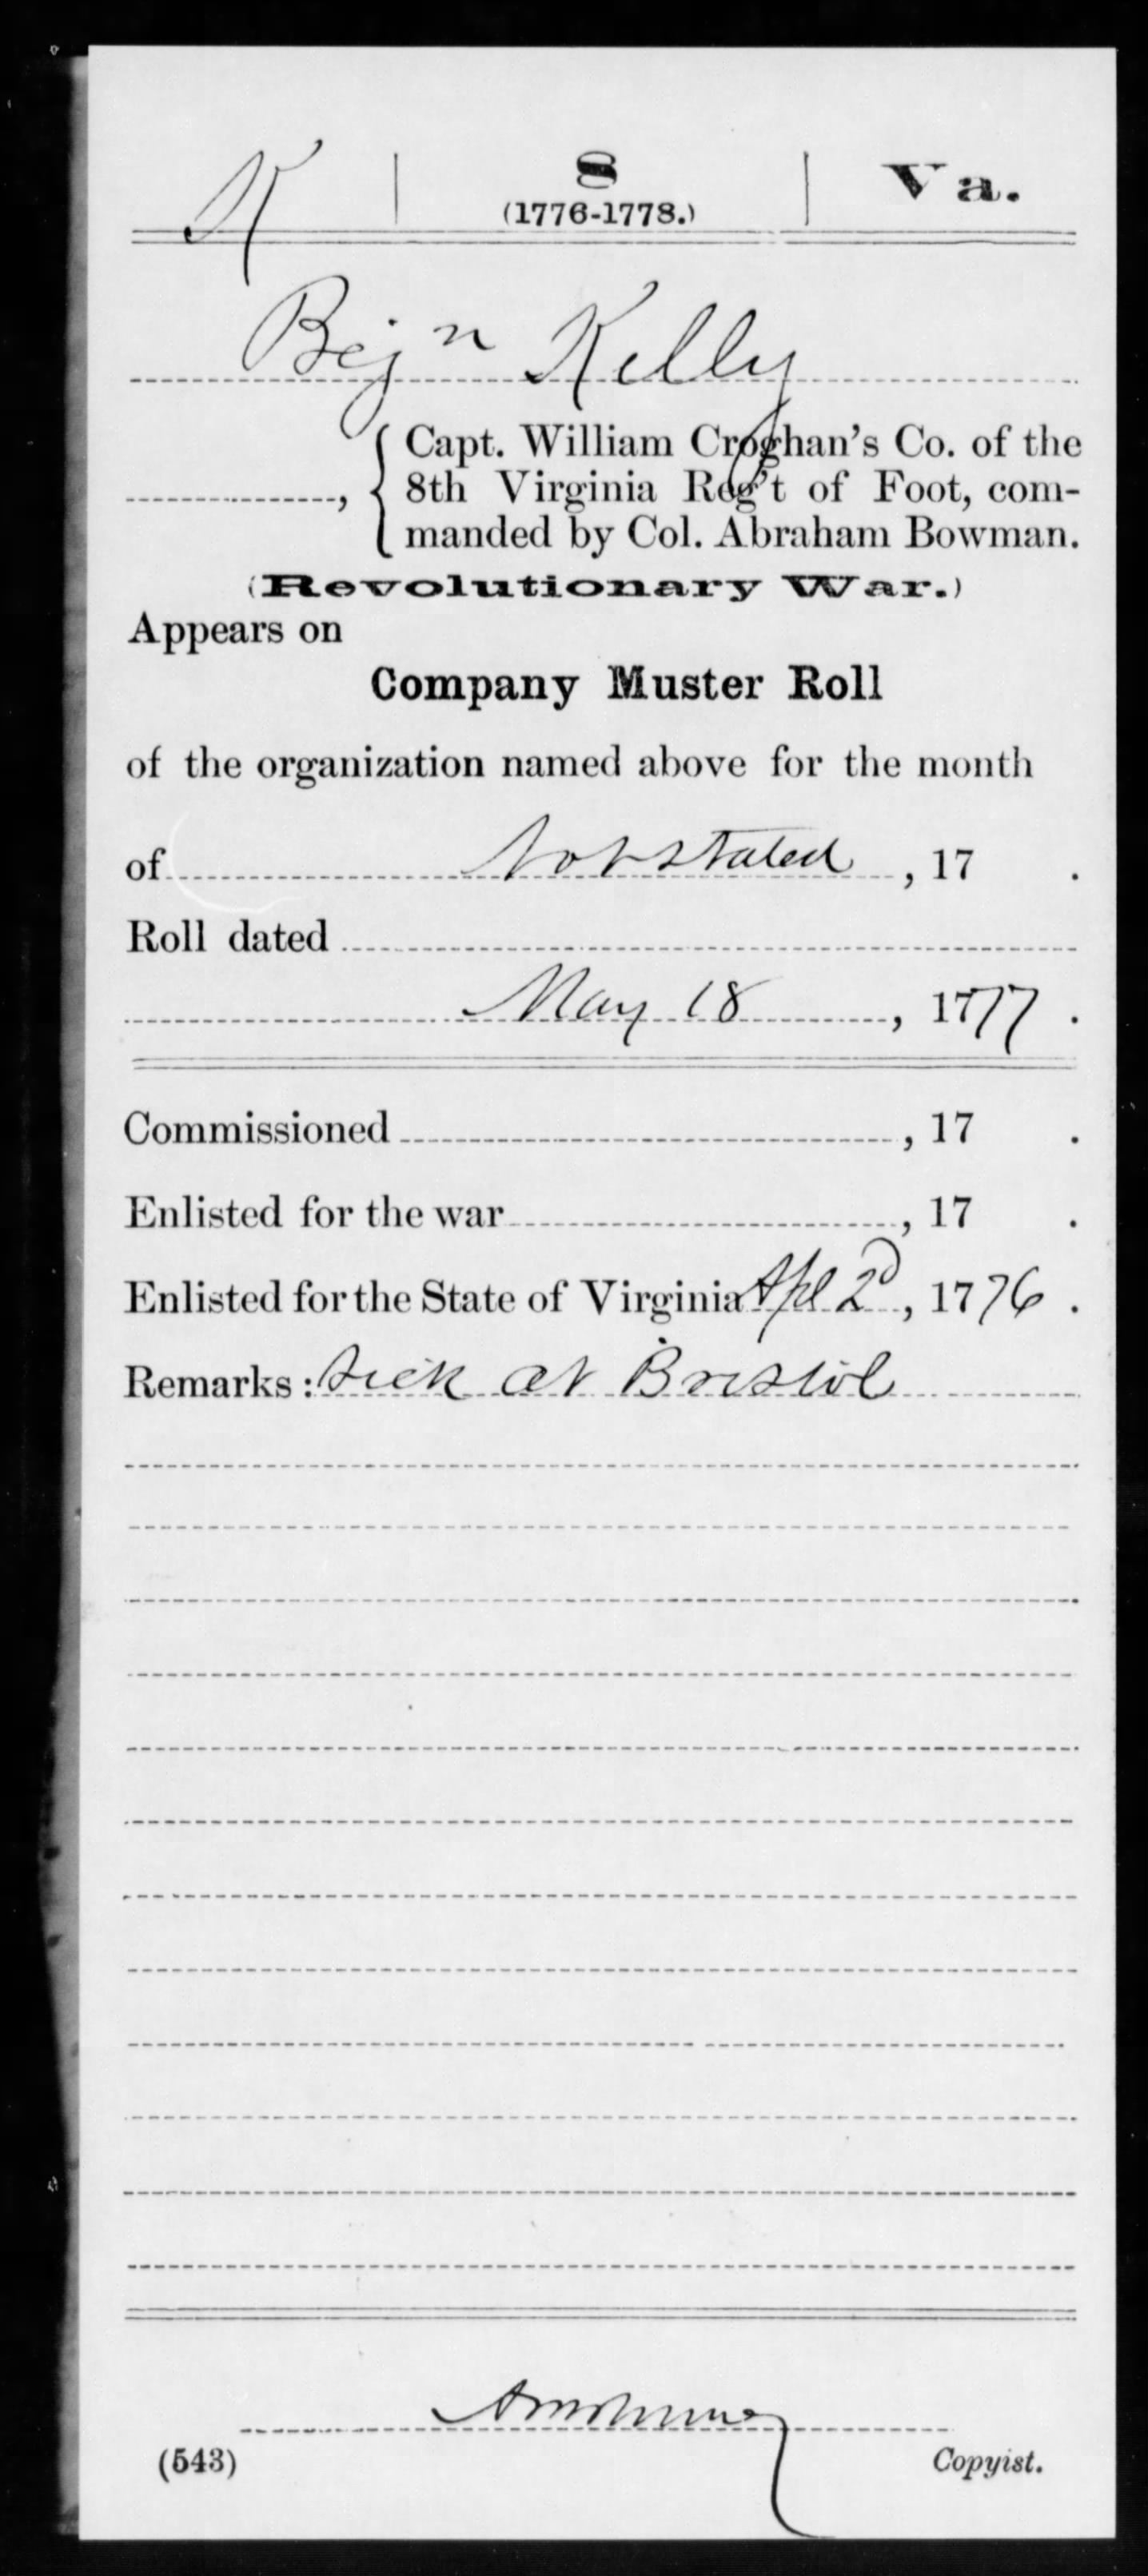 K | 8 | Va.
(1776-1778.)
Bejn Kelly
Capt. William Croghan's Co. of the
, 8th Virginia Reg't of Foot, com-
manded by Col. Abraham Bowman.
(Revolutionary War.)
Appears on
Company Muster Roll
of the organization named above for the month
of Not stated, 17 .
Roll dated
May 18, 1777.
Commissioned , 17 .
Enlisted for the war , 17 .
Enlisted for the State of Virginia Apl 2d, 1776.
Remarks: Sick at Bristol
(543) Copyist.